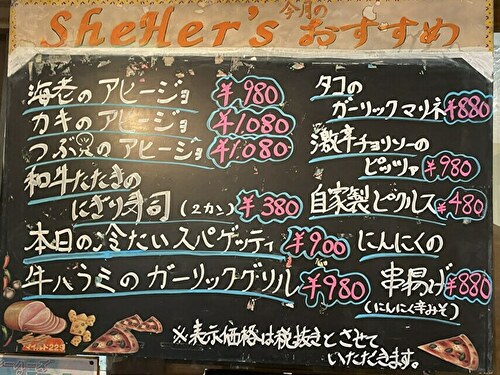 SheHer's 今月の おすすめ
海老のアヒージョ ¥980
カキのアヒージョ ¥1,080
つぶ貝のアヒージョ ¥1,080
和牛たたきの
にぎり寿司(2カン) ¥380
本日の冷たいスパゲッティ ¥900
牛ハラミのガーリックグリル ¥980
タコの
ガーリックマリネ ¥880
激辛チョリソーの
ピッツァ ¥980
自家製ピクルス ¥480
にんにくの
串揚げ ¥880
(にんにく辛みそ)
※表示価格は税抜きとさせて
いただきます。